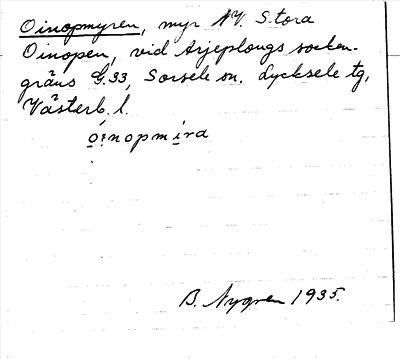 Oinopmyren, myr NV. Stora
Oinopen, vid Arjeplougs socken-
gräns G.33, Sorsele sn, Lycksele tg,
Västerb. l.
oinopmira
B. Nygren 1935.